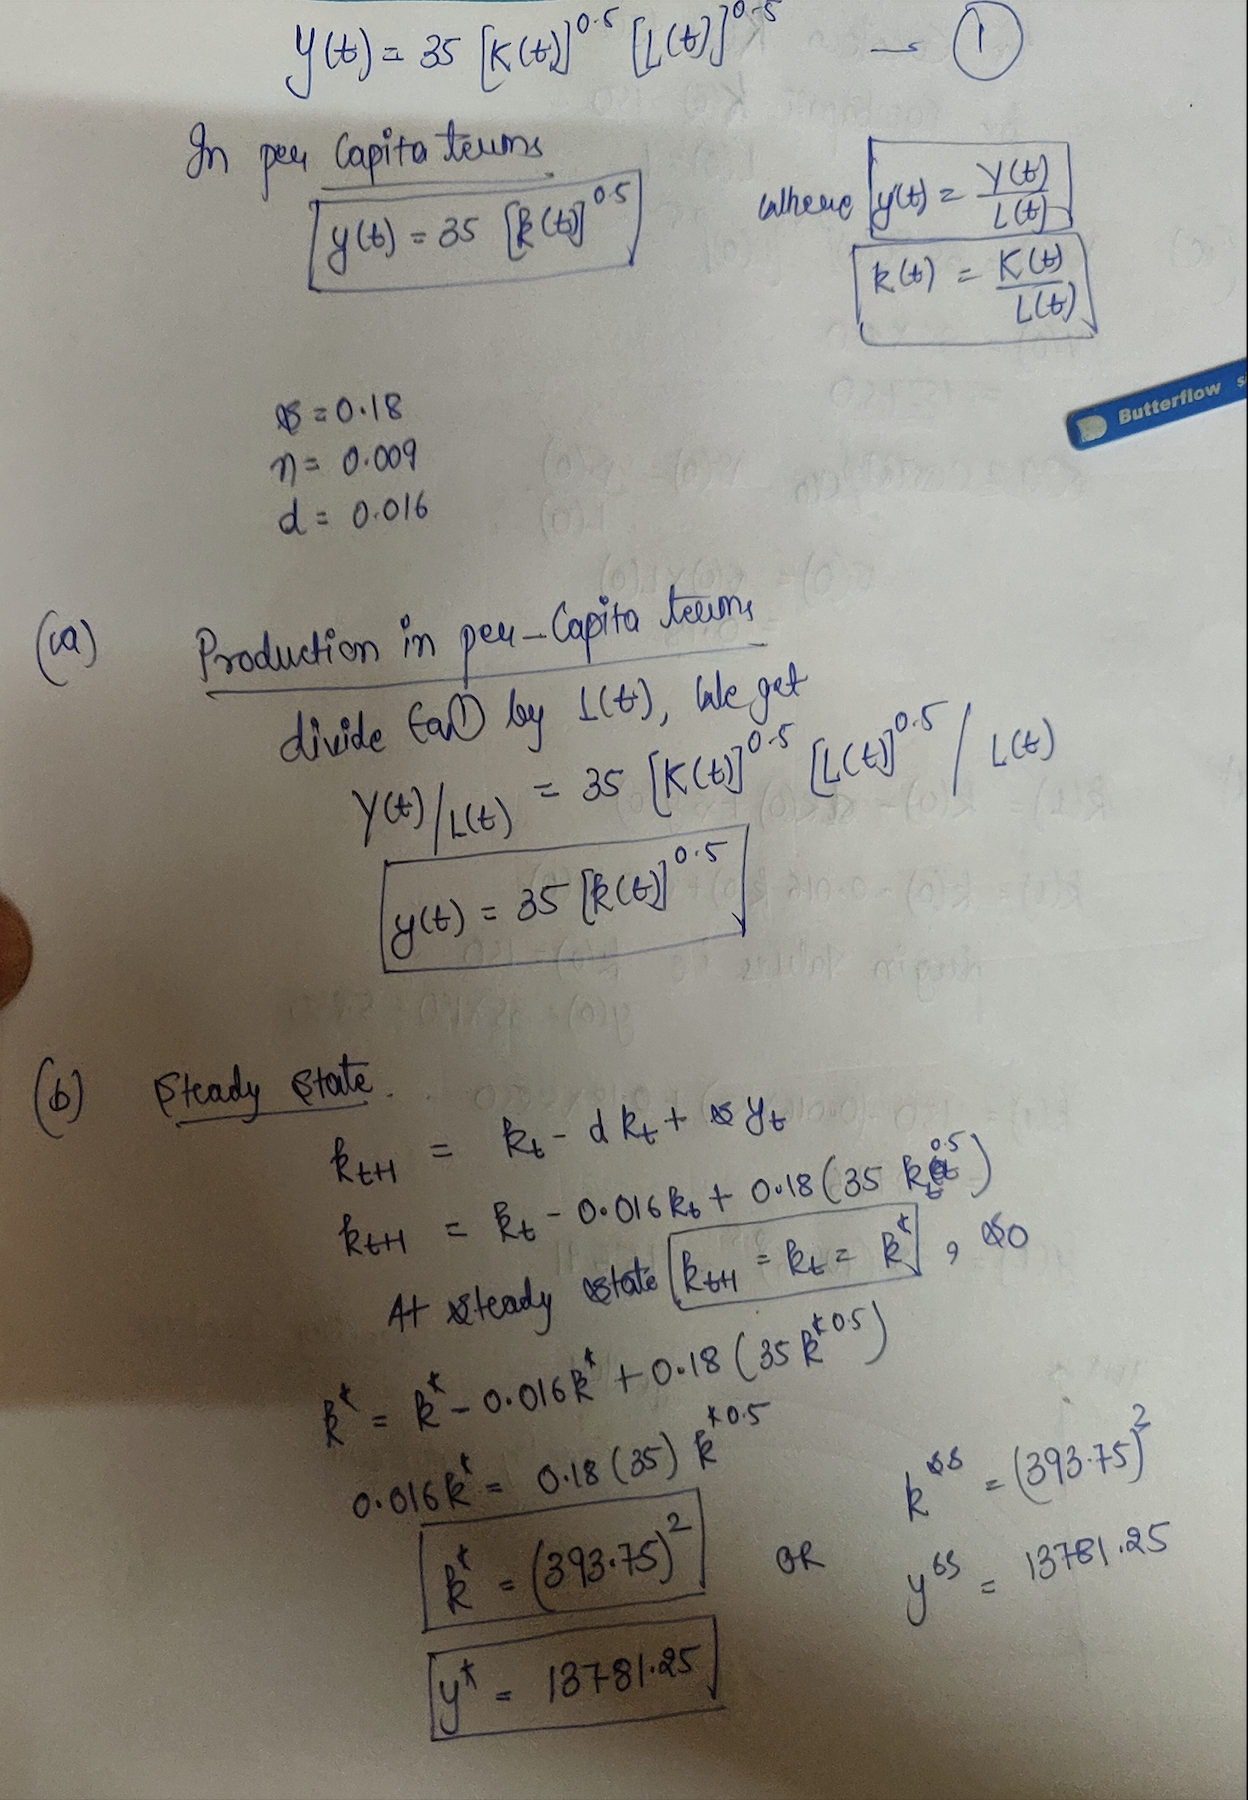 Y(t) = 35 [K(t)]^0.5 [L(t)]^0.5 → ①
In per Capita terms
y(t) = 35 [k(t)]^0.5
where y(t) = Y(t)/L(t)
k(t) = K(t)/L(t)
Butterflow
s = 0.18
n = 0.009
d = 0.016
(a) Production in per-Capita terms
divide Eq① by L(t), we get
Y(t)/L(t) = 35 [K(t)]^0.5 [L(t)]^0.5 / L(t)
y(t) = 35 [k(t)]^0.5
(b) Steady state.
k_t+1 = k_t - d k_t + s y_t
k_t+1 = k_t - 0.016 k_t + 0.18 (35 k_t^0.5)
At steady state k_t+1 = k_t = k*, so
k* = k* - 0.016 k* + 0.18 (35 k*^0.5)
0.016 k* = 0.18 (35) k*^0.5
k* = (393.75)^2 OR k^ss = (393.75)^2
y* = 13781.25 y^ss = 13781.25